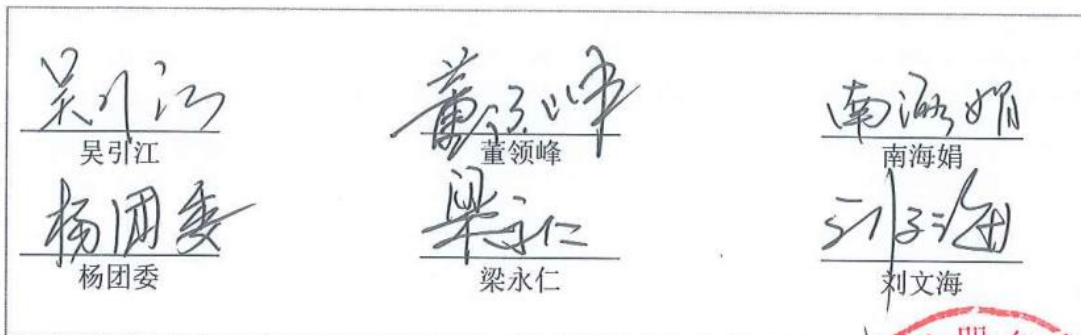 吴引江 董领峰 南海娟
吴引江 董领峰 南海娟
杨团委 梁永仁 刘文海
杨团委 梁永仁 刘文海